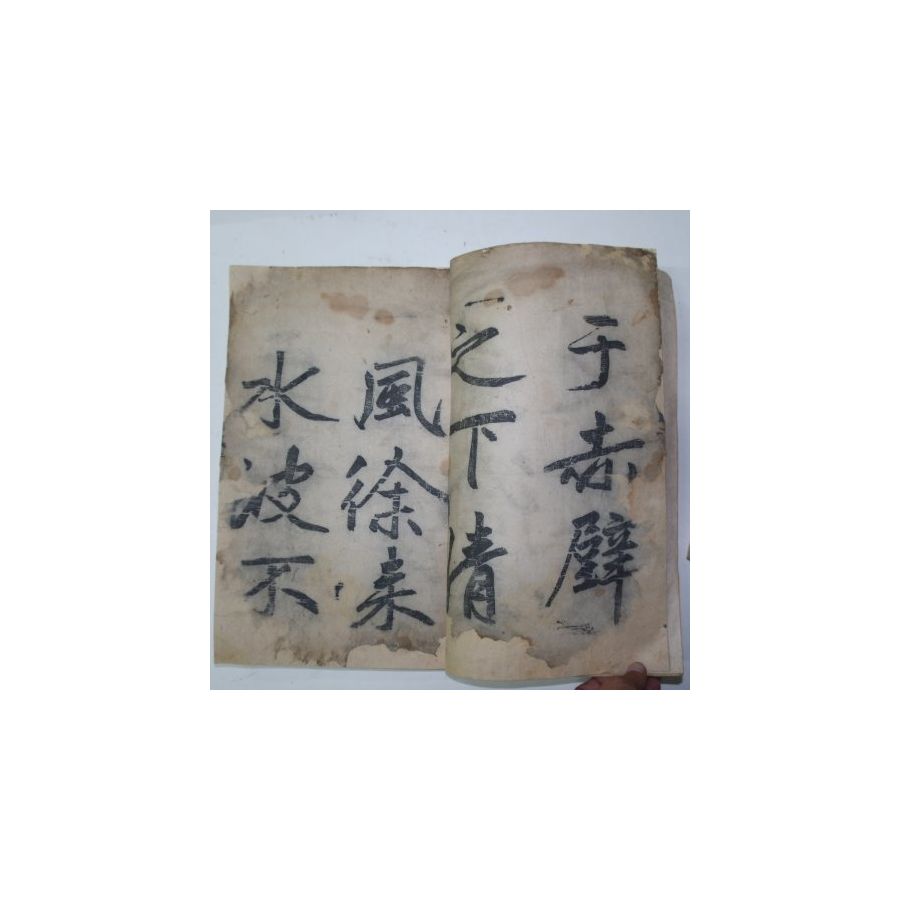 于赤壁
之下清
風徐来
水波不